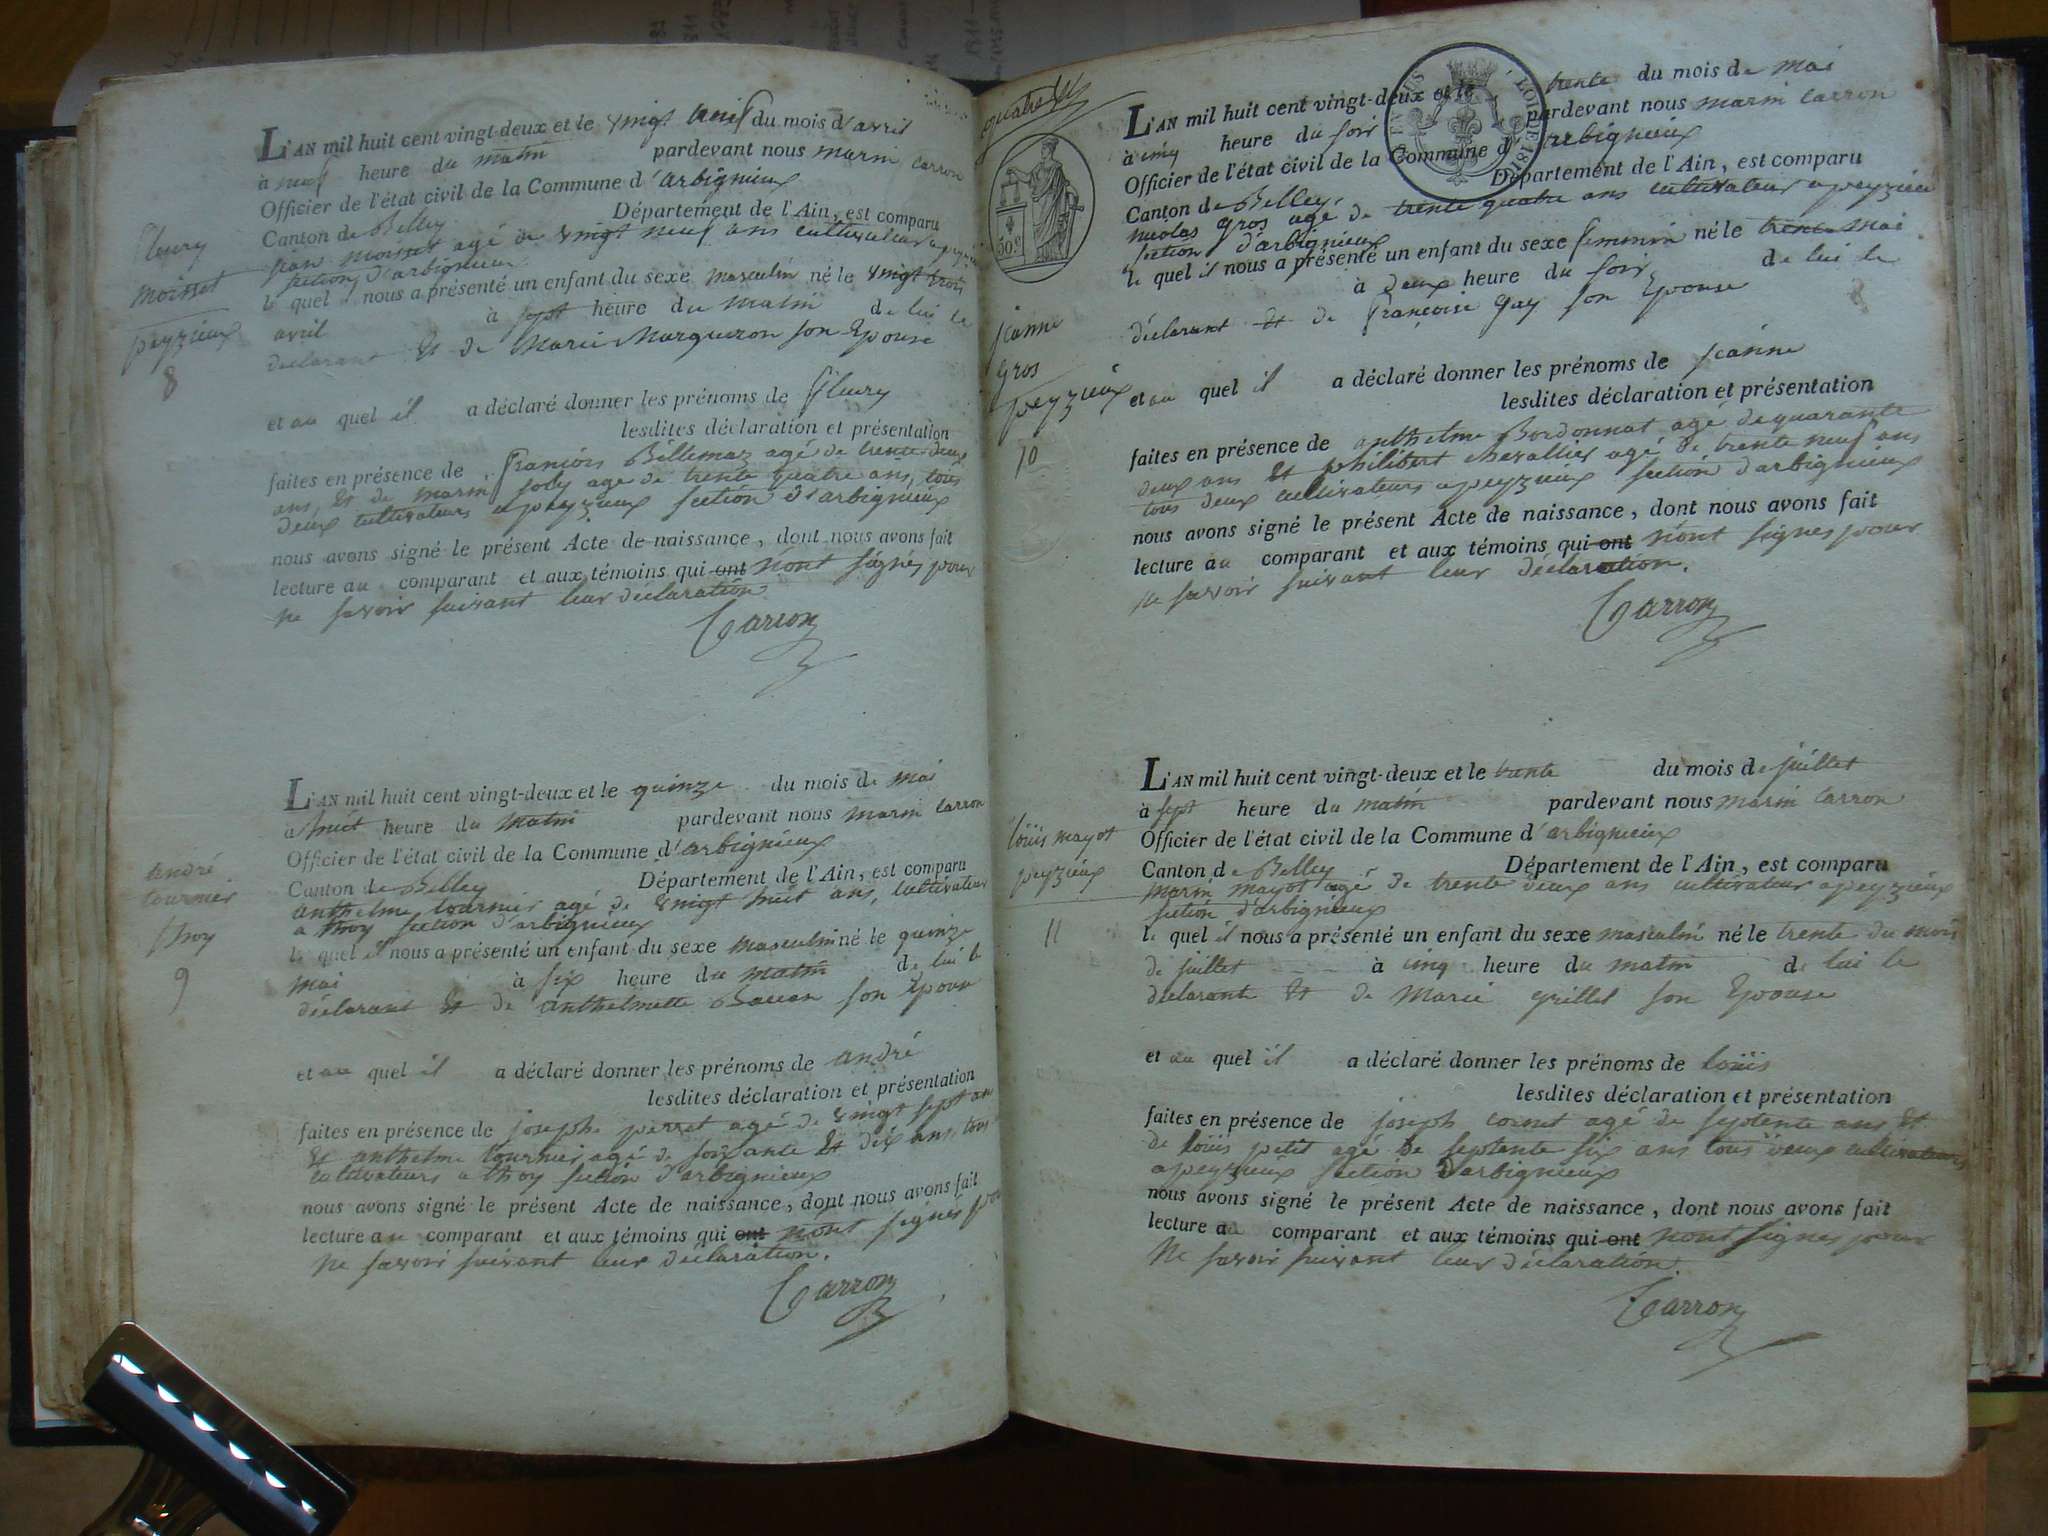 L'AN mil huit cent vingt-deux et le vingt du mois d'avril
à neuf heure du matin pardevant nous marin carron
Officier de l'état civil de la Commune d'arbignieux
Canton de Belley Département de l'Ain, est comparu
jean moisset agé de vingt neuf ans cultivateur a peyzieu
section d'arbignieux
le quel il nous a présenté un enfant du sexe masculin né le vingt trois
avril à sept heure du matin de lui le
declarant et de Marie Marqueron son Epouse
et au quel il a déclaré donner les prénoms de fleury
lesdites déclaration et présentation
faites en présence de françois Billemaz agé de trente deux
ans, et de marin joly agé de trente quatre ans, tous
deux cultivateurs a peyzieux section d'arbignieux
nous avons signé le présent Acte de naissance, dont nous avons fait
lecture au comparant et aux témoins qui ont n'ont signés pour
ne savoir suivant leur déclaration
Carron
fleury
moisset
peyzieux
8
L'AN mil huit cent vingt-deux et le quinze du mois de mai
à huit heure du matin pardevant nous marin carron
Officier de l'état civil de la Commune d'arbignieux
Canton de Belley Département de l'Ain, est comparu
anthelme tournier agé de vingt huit ans, cultivateur
a thoy section d'arbignieux
le quel il nous a présenté un enfant du sexe masculin né le quinze
mai à six heure du matin de lui le
déclarant et de anthelmette son Epouse
et au quel il a déclaré donner les prénoms de andré
lesdites déclaration et présentation
faites en présence de joseph perret agé de vingt sept ans
et anthelme tournier agé de soixante et dix ans, tous
cultivateurs a thoy section d'arbignieux
nous avons signé le présent Acte de naissance, dont nous avons fait
lecture au comparant et aux témoins qui ont n'ont signés pour
ne savoir suivant leur déclaration.
Carron
andré
tournier
thoy
9
L'AN mil huit cent vingt-deux et le trente du mois de mai
à cinq heure du soir pardevant nous marin carron
Officier de l'état civil de la Commune d'arbignieux
Canton de Belley Département de l'Ain, est comparu
nicolas gros agé de trente quatre ans cultivateur a peyzieu
section d'arbignieux
le quel il nous a présenté un enfant du sexe femmin né le trente mai
à deux heure du soir de lui le
déclarant et de françoise gay son Epouse
et au quel il a déclaré donner les prénoms de jeanne
lesdites déclaration et présentation
faites en présence de anthelme Bordonnat agé de quarante
deux ans et philibert chevallier agé de trente neuf ans
tous deux cultivateurs a peyzieux section d'arbignieux
nous avons signé le présent Acte de naissance, dont nous avons fait
lecture au comparant et aux témoins qui ont n'ont signés pour
ne savoir suivant leur déclaration.
Carron
50 c.
jeanne
gros
peyzieux
10
L'AN mil huit cent vingt-deux et le trente du mois de juillet
à sept heure du matin pardevant nous marin carron
Officier de l'état civil de la Commune d'arbignieux
Canton de Belley Département de l'Ain, est comparu
marin mayot agé de trente deux ans cultivateur a peyzieux
section d'arbignieux
le quel il nous a présenté un enfant du sexe masculin né le trente du mois
de juillet à cinq heure du matin de lui le
déclarante et de Marie grillet son Epouse
et au quel il a déclaré donner les prénoms de loüis
lesdites déclaration et présentation
faites en présence de joseph cornet agé de septente ans et
de loüis petit agé de septente six ans tous deux cultivateurs
a peyzieux section d'arbignieux
nous avons signé le présent Acte de naissance, dont nous avons fait
lecture au comparant et aux témoins qui ont n'ont signes pour
Ne savoir suivant leur déclaration.
Carron
loüis mayot
peyzieux
11